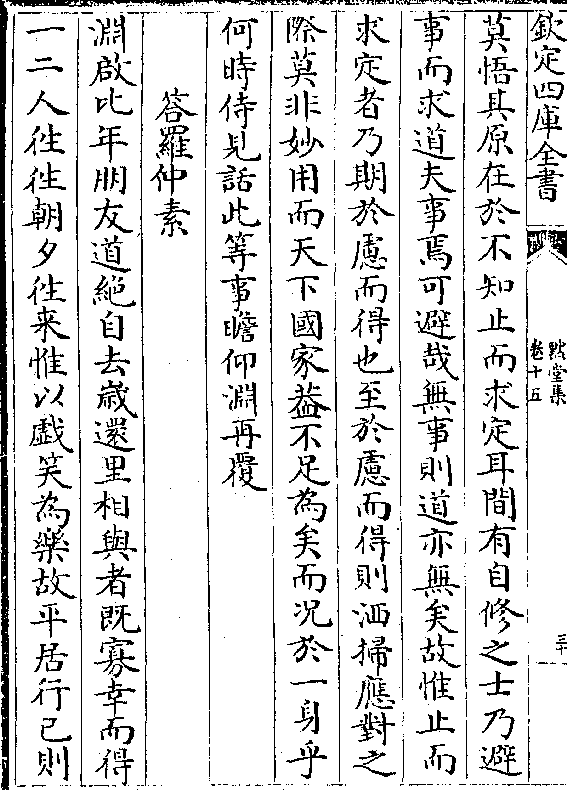 欽定四庫全書
默堂集
卷十五
三十
莫悟其原在於不知止而求定耳間有自修之士乃避
事而求道夫事焉可避哉無事則道亦無矣故惟止而
求定者乃期於慮而得也至於慮而得則洒掃應對之
際莫非妙用而天下國家葢不足為矣而况於一身乎
何時侍見話此等事瞻仰淵再覆
答羅仲素
淵啟比年朋友道絶自去歳還里相與者既寡幸而得
一二人徃徃朝夕徃来惟以戯笑為樂故平居行已則